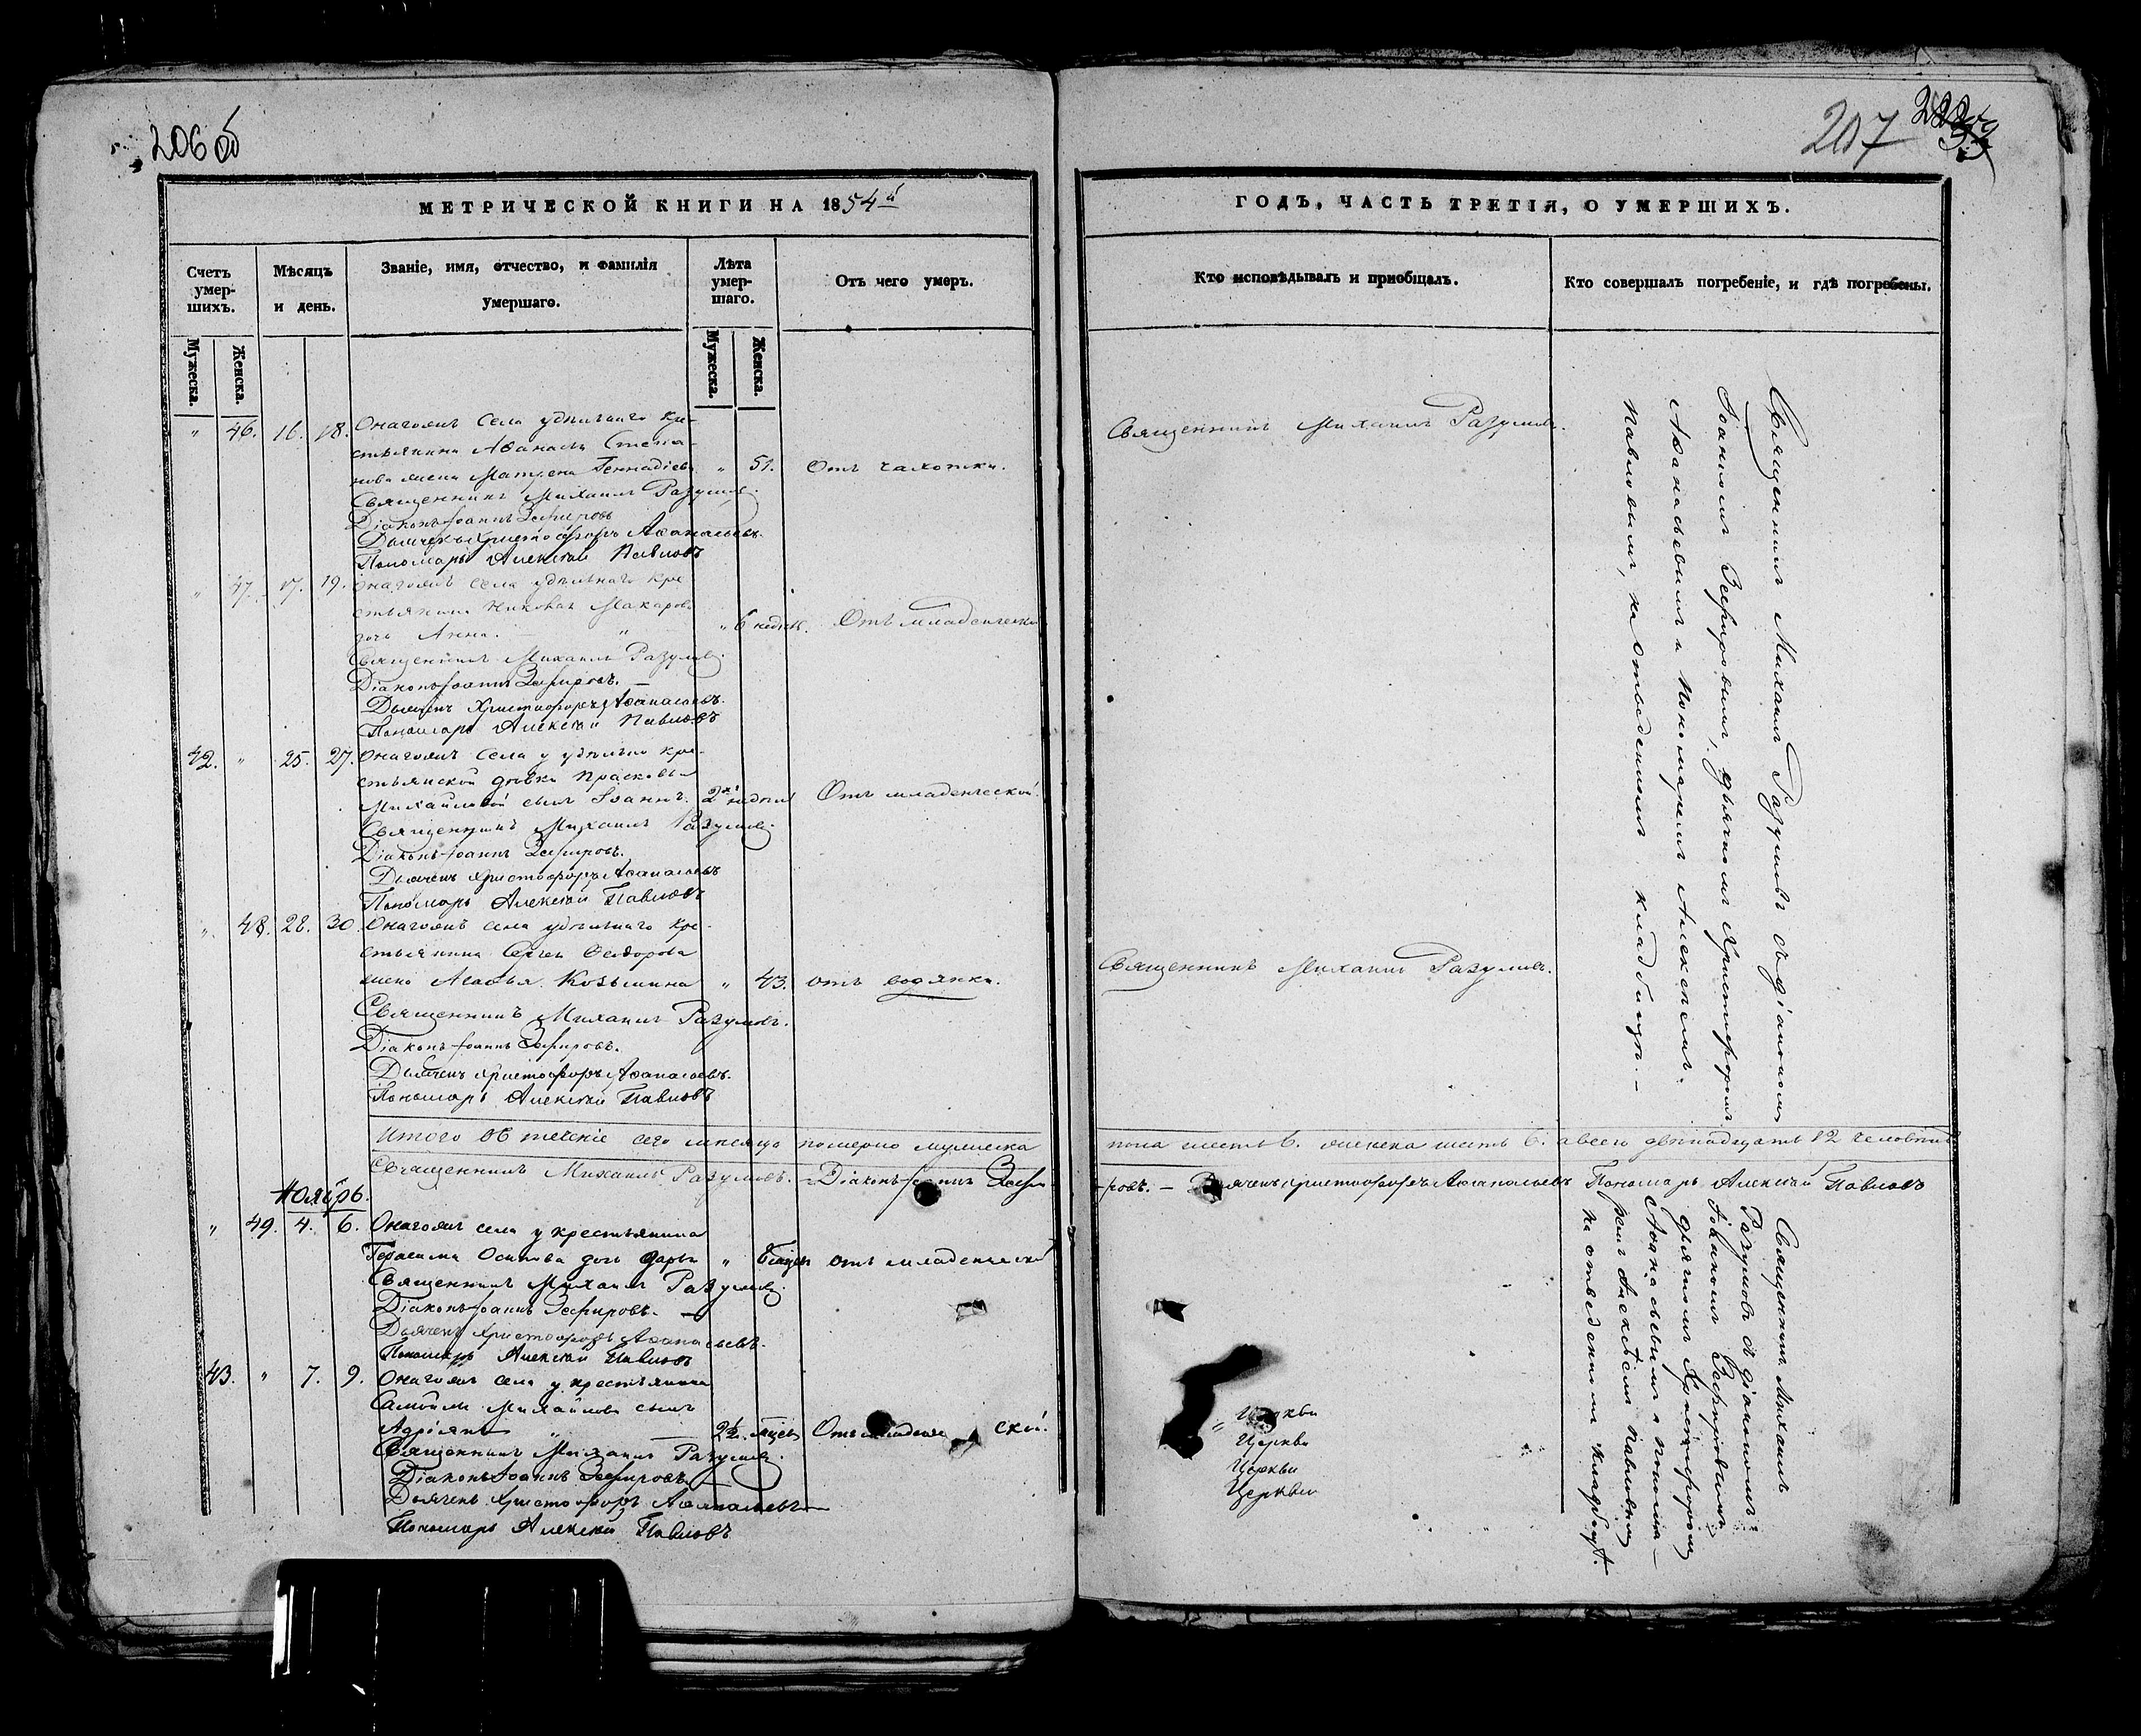 206 об
207
МЕТРИЧЕСКОЙ КНИГИ НА 1854й
Счетъ умер-шихъ.
Мѣсяцъ и день.
Званіе, имя, отчество, и фамилія умершаго.
Лѣта умер-шаго.
Отъ чего умеръ.
Мужеска.
Женска.
Мужеска.
Женска.
" 46. 16. 18. Онагожъ Села удѣльнаго кре-
стьянина Аѳанасія Степа-
нова жена Матрена Геннадіева " 51. Отъ чахотки.
Священникъ Михаилъ Разумовъ.
Діаконъ Іоаннъ Зефировъ
Дьячекъ Христофоръ Аѳанасьевъ.
Пономарь Алексѣй Павловъ
" 47. 17. 19. Онагожъ села удѣльнаго кре
стьянина Макарова
дочь Анна. " " 6 недѣль. Отъ младенческой
Священникъ Михаилъ Разумовъ.
Діаконъ Іоаннъ Зефировъ.
Дьячекъ Христофоръ Аѳанасьевъ.
Пономарь Алексѣй Павловъ
42. " 25. 27. Онагожъ Села у удѣльно кре-
стьянской дѣвки Прасковьи
Михайловой сынъ Іоаннъ. 2хъ недѣль Отъ младенческой.
Священникъ Михаилъ Разумовъ.
Діаконъ Іоаннъ Зефировъ.
Дьячекъ Христофоръ Аѳанасьевъ
Пономарь Алексѣй Павловъ
". 48. 28. 30. Онагожъ села удѣльнаго кре-
стьянина Сергея Ѳеодорова
жена Агаѳья Козьмина " 43. отъ водянки.
Священникъ Михаилъ Разумовъ.
Діаконъ Іоаннъ Зефировъ.
Дьячекъ Христофоръ Аѳанасьевъ.
Пономарь Алексѣй Павловъ
Итого въ теченіе сего мѣсяца померло мужеска
Священникъ Михаилъ Разумовъ. Діаконъ Іоаннъ Зефи-
Ноябрь.
" 49. 4. 6. Онагожъ села у крестьянина
Герасима Осипова дочь Дарья " мѣсяцъ отъ младенческой
Священникъ Михаилъ Разумовъ.
Діаконъ Іоаннъ Зефировъ.
Дьячекъ Христофоръ Аѳанасьевъ.
Пономарь Алексѣй Павловъ
43. " 7. 9. Онагожъ села у крестьянина
Самойлы Михайлова сынъ
Адріянъ " 2½. мѣсяц Отъ младенче ской.
Священникъ Михаилъ Разумовъ.
Діаконъ Іоаннъ Зефировъ
Дьячекъ Христофоръ Аѳанасьевъ
Пономарь Алексѣй Павловъ
ГОДЪ, ЧАСТЬ ТРЕТІЯ, О УМЕРШИХЪ.
Кто исповѣдывалъ и пріобщалъ.
Кто совершалъ погребеніе, и гдѣ погребены.
Священникъ Михаилъ Разумовъ.
Священникъ Михаилъ Разумовъ.
Священникъ Михаилъ Разумовъ съ діакономъ
Іоанномъ Зефировымъ, дьячкомъ Христофоромъ
Аѳанасьевымъ и пономаремъ Алексѣемъ
Павловымъ, на отведенномъ кладбищѣ.
пола шесть 6. женска шесть 6. а всего двѣнадцать 12 человѣкъ
-ровъ. Дьячекъ Христофоръ Аѳанасьевъ Пономарь Алексѣй Павловъ
Священникъ Михаилъ
Разумовъ съ діакономъ
Іоанномъ Зефировымъ
дьячкомъ Христофоромъ
Аѳанасьевымъ и понома-
ремъ Алексѣемъ Павловымъ
на отведенномъ кладбищѣ.
Церкви
Церкви
Церкви
Церкви